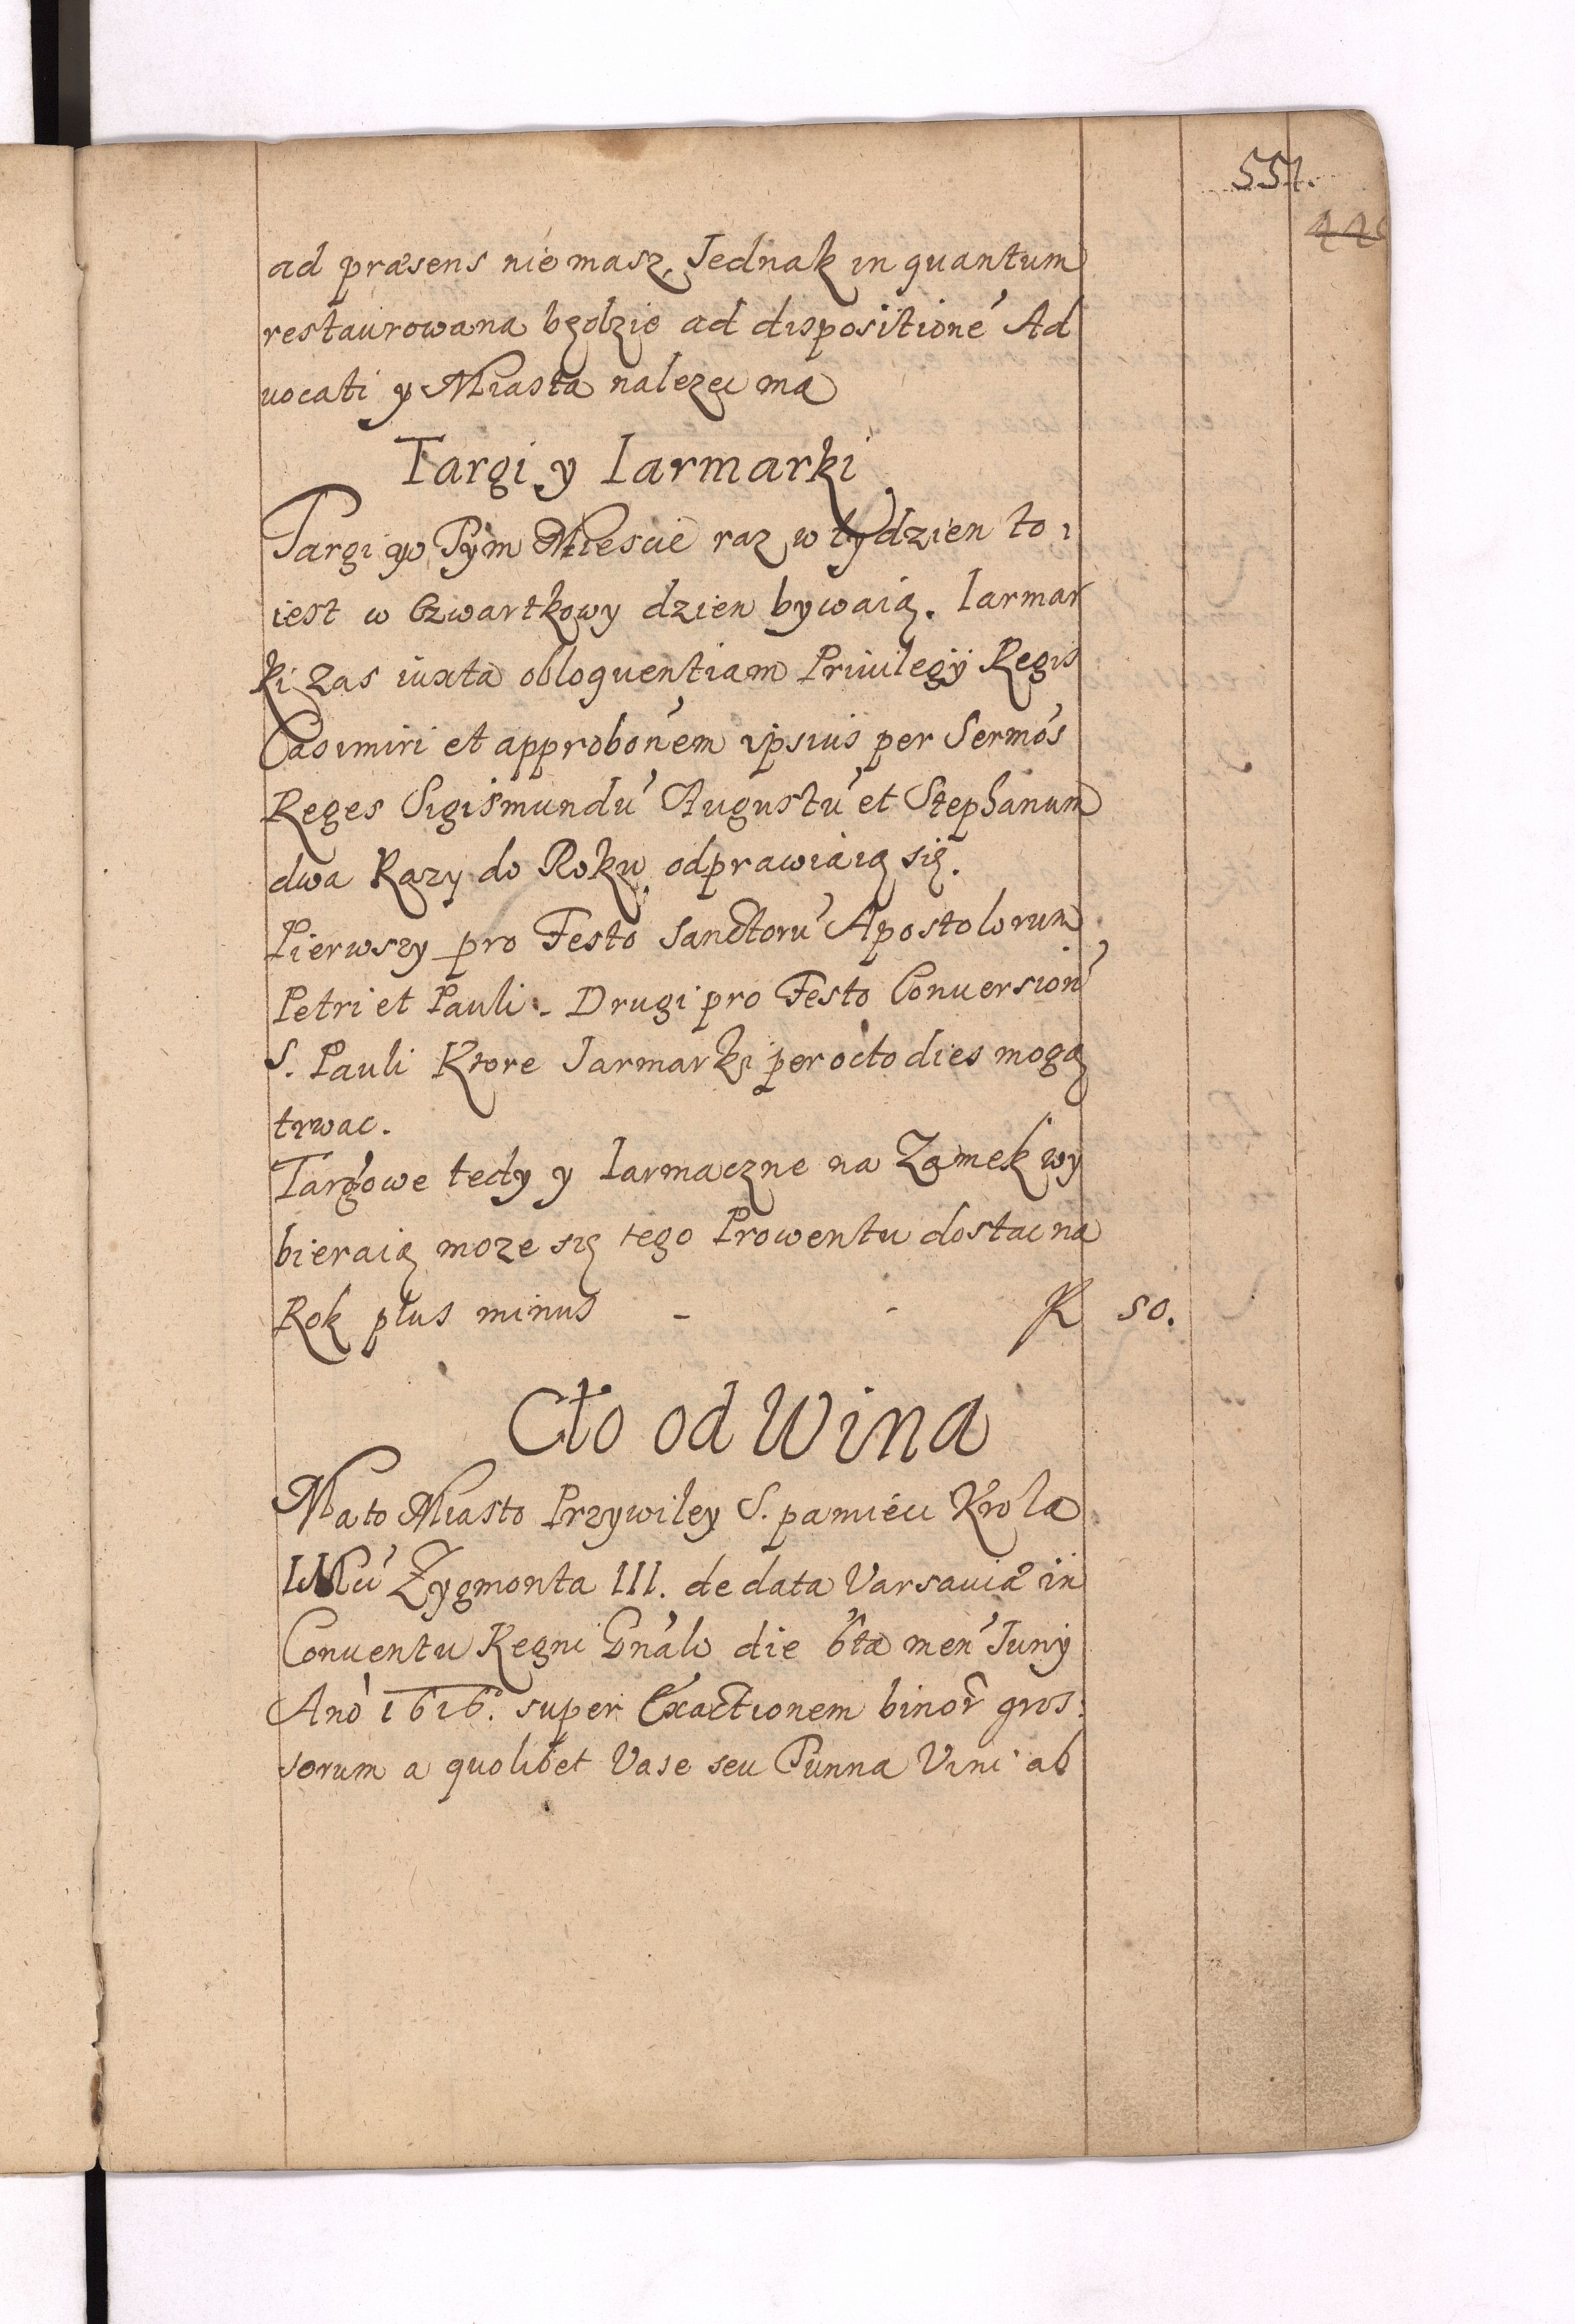 551.
ad præsens nie masz, Jednak in quantum
restaurowana będzie ad dispositione' Ad
vocati y Miasta nalezec ma
Targi y Iarmarki
Targi w Tym Miescie raz w tydzien to
iest w Czwartkowy dzien bywaią. Iarmar
ki zas iuxta obloquentiam Privilegÿ Regis
Casimiri et approbon'em ipsius per Sermo's
Reges Sigismundu' Augustu' et Stephanum
dwa Razy do Roku odprawiaią się.
Pierwszy pro Festo Sanctoru' Apostolorum
Petri et Pauli. Drugi pro Festo Conversion'
S. Pauli Ktore Jarmarki per octo dies mogą
trwac.
Targowe tedy y Iarmaczne na Zamek wy
bieraią moze się tego Prowentu dostac na
Rok plus minus - - 50.
Cło od Wina
Ma to Miasto Przywiley S. pamięci Krola
Zygmonta III. de data Varsaviæ in
Conventu Regni Gn'ale die 6ta men' Junÿ
Ano 1616. super Exactionem binor gros:
sorum a quolibet Vase seu Tunna Vini ab